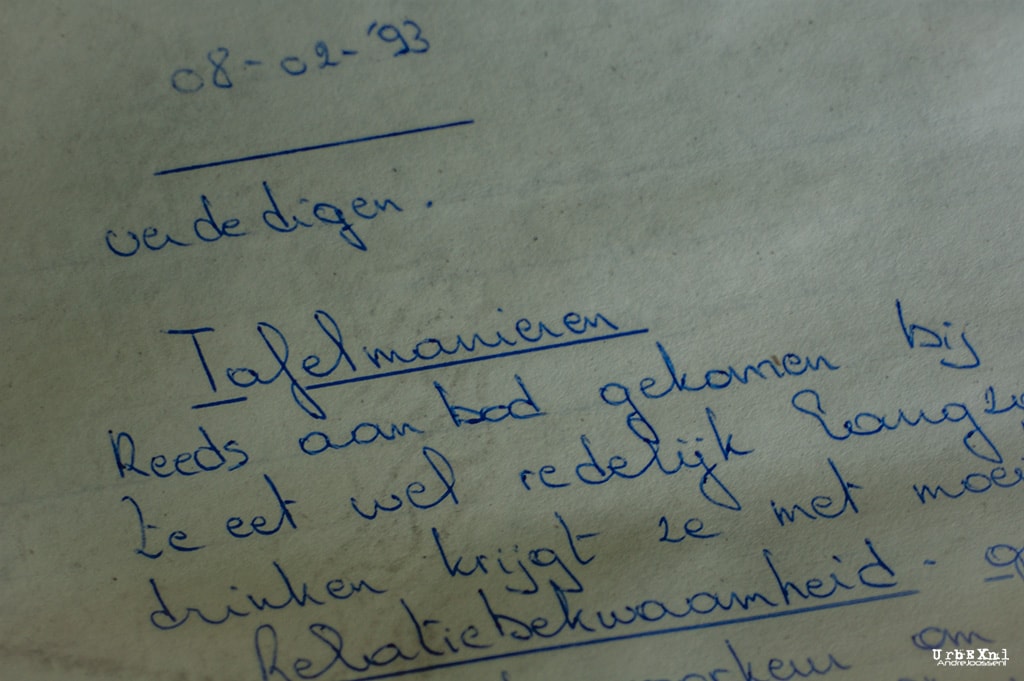 08-02-'93
verdedigen.
Tafelmanieren
Reeds aan bod gekomen bij
Ze eet wel redelijk langz
drinken krijgt ze met moei
Relatiebekwaamheid -
om
UrbEXnl
AndreJoosse.nl